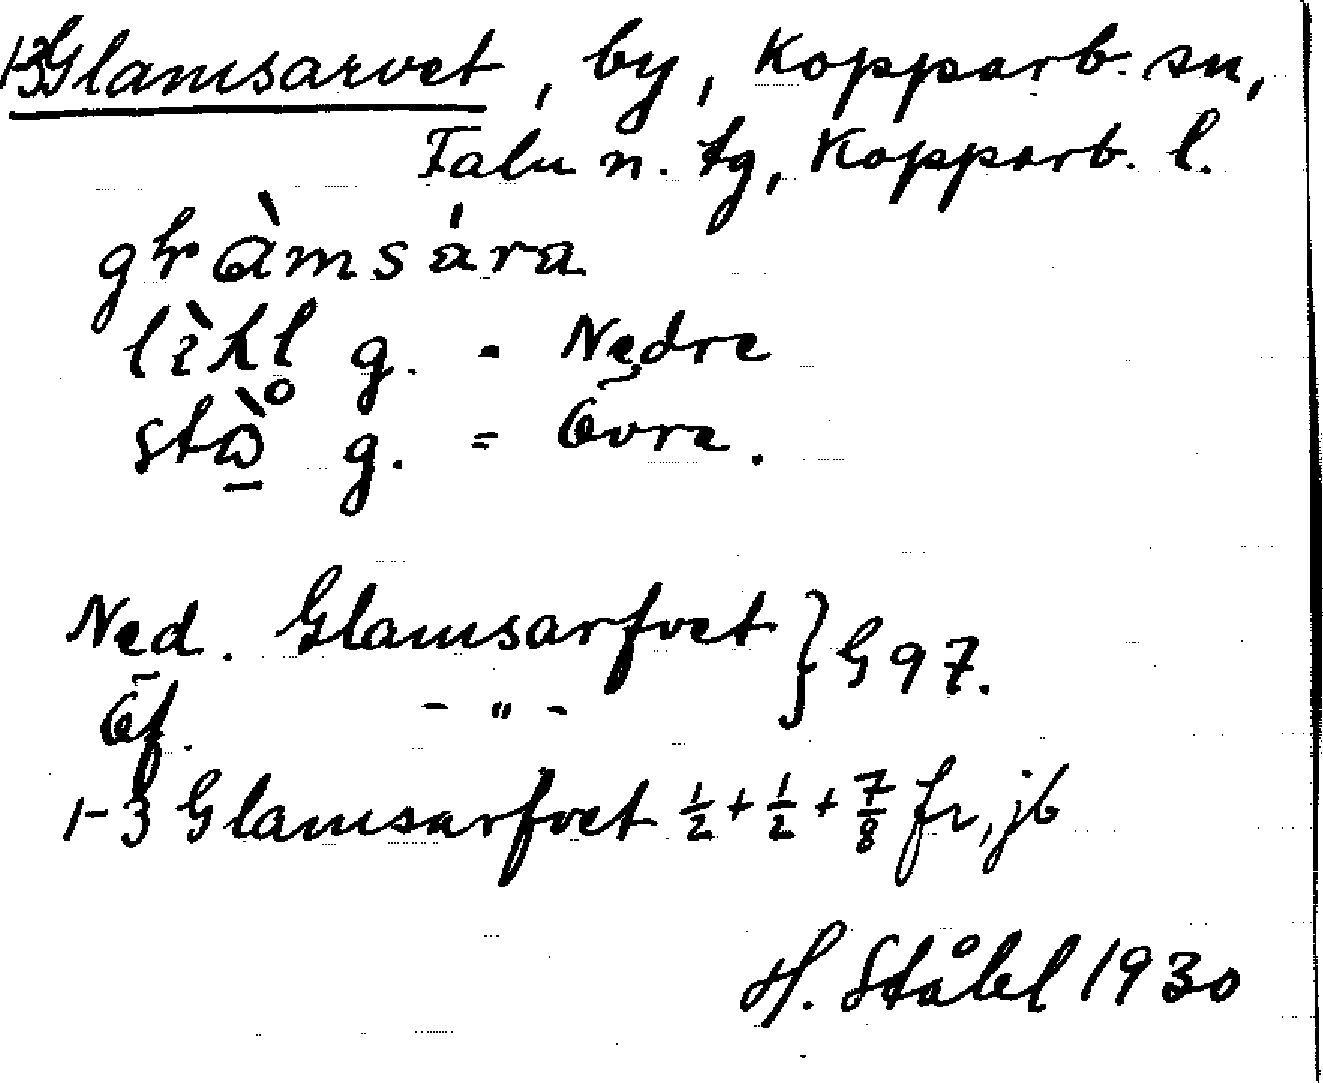 1-3 Glamsarvet, by, Kopparb. sn,
Falu n. tg, Kopparb. l.
g. - Nedre
g. = Övre.
Ned. Glamsarfvet } G 97.
Öf. - " -
1-3 Glamsarfvet ½ + ½ + ⅞ fr, jb
H. Ståhl 1930